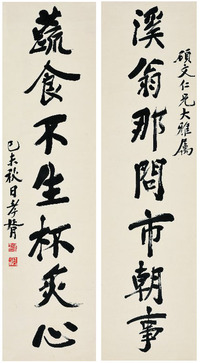 溪翁那問市朝事
碩文仁兄大雅屬
蔬食不生杯炙心
己未秋日孝胥